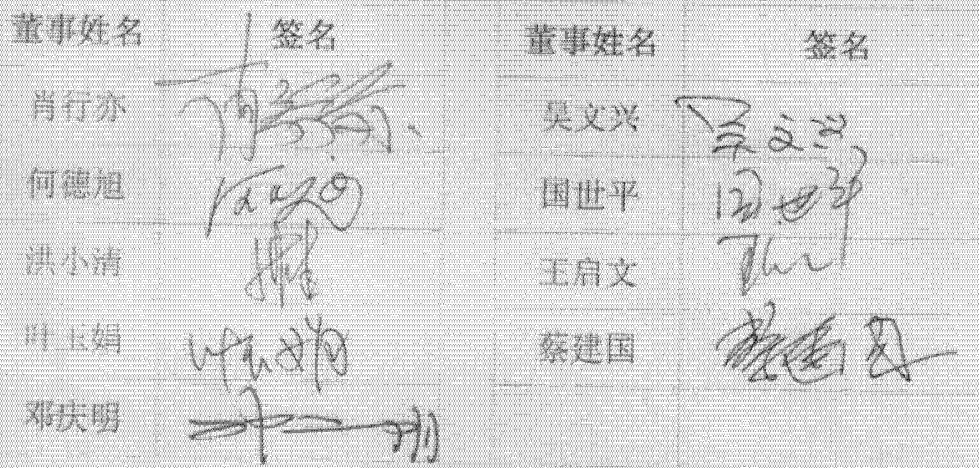 董事姓名 签名 董事姓名 签名
肖行亦 吴文兴 吴文兴
何德旭 国世平 国世平
洪小清 王启文
叶玉娟 叶玉娟 蔡建国 蔡建国
邓庆明